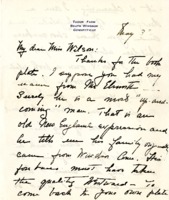 THORN FARM
SOUTH WINDSOR
CONNECTICUT
May ?
My dear Miss Wilson:
Thanks for the book
plate. I suppose you had my
name from Mr.
Surely he is a most "up and
coming" man. That is an
old New England expression and
he tells me his family
came from Windsor Conn. His
fore bears must have taken
the quality Westward. To
come back to your own plate